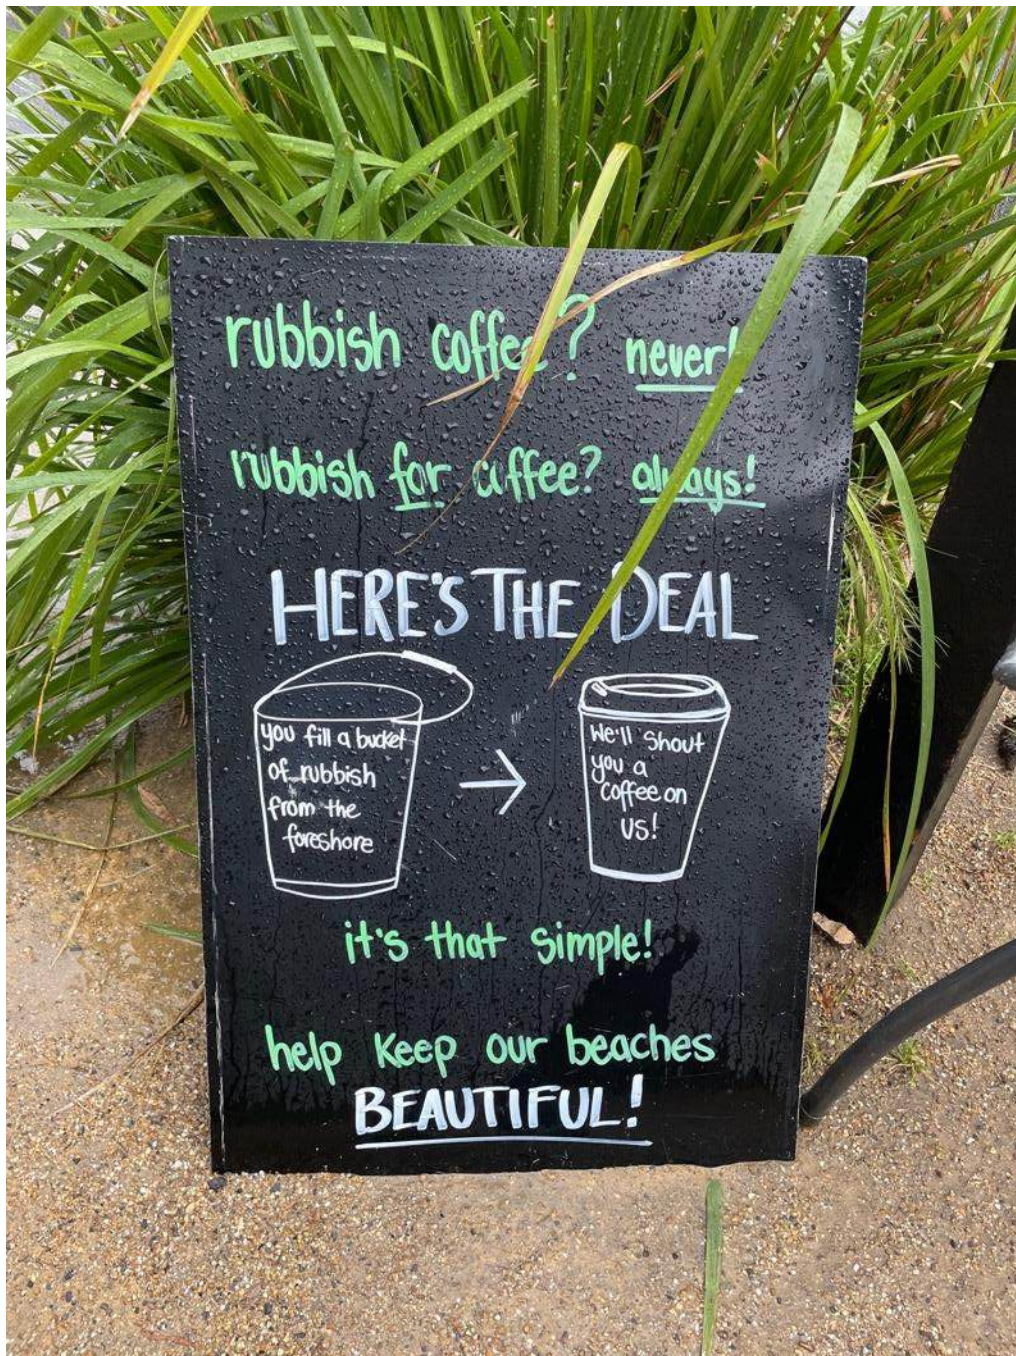 rubbish coffee? never!
rubbish for coffee? always!
HERE'S THE DEAL
you fill a bucket
of rubbish
from the
foreshore
We'll shout
you a
coffee on
us!
it's that simple!
help keep our beaches
BEAUTIFUL!